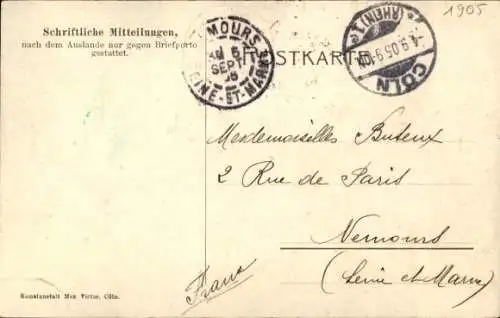 1905
Schriftliche Mitteilungen,
nach dem Auslande nur gegen Briefporto
gestattet.
NEMOURS
SEPT
05
SEINE-ET-MARNE
POSTKARTE
CÖLN
(RHEIN) 1
4.9.05.9-10N
Mesdemoiselles Buteux
2 Rue de Paris
Nemours
(Seine et Marne)
Franc
Kunstanstalt Max Victor, Cöln.